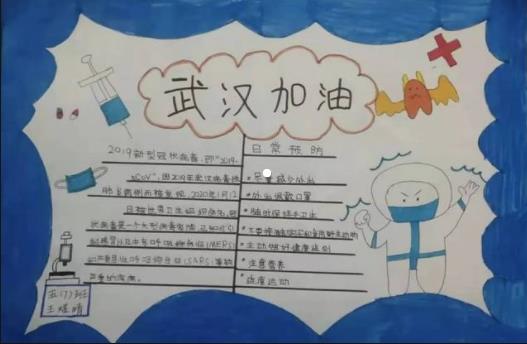 武汉加油
2019新型冠状病毒,即"2019-
nCoV",因2019年
肺炎病例而被发现,2020年1月12
日被世界卫生组织命名,冠
状病毒是一个大型病毒家族,已知可引
起感冒以及中东呼吸综合征(MERS)
和严重急性呼吸综合征(SARS)等较
严重的疾病。
日常预防
*尽量减少外出
*外出佩戴口罩
*随时保持手卫生
*主动做好健康监测
*注意营养
*适度运动
五(7)班
王煜晴